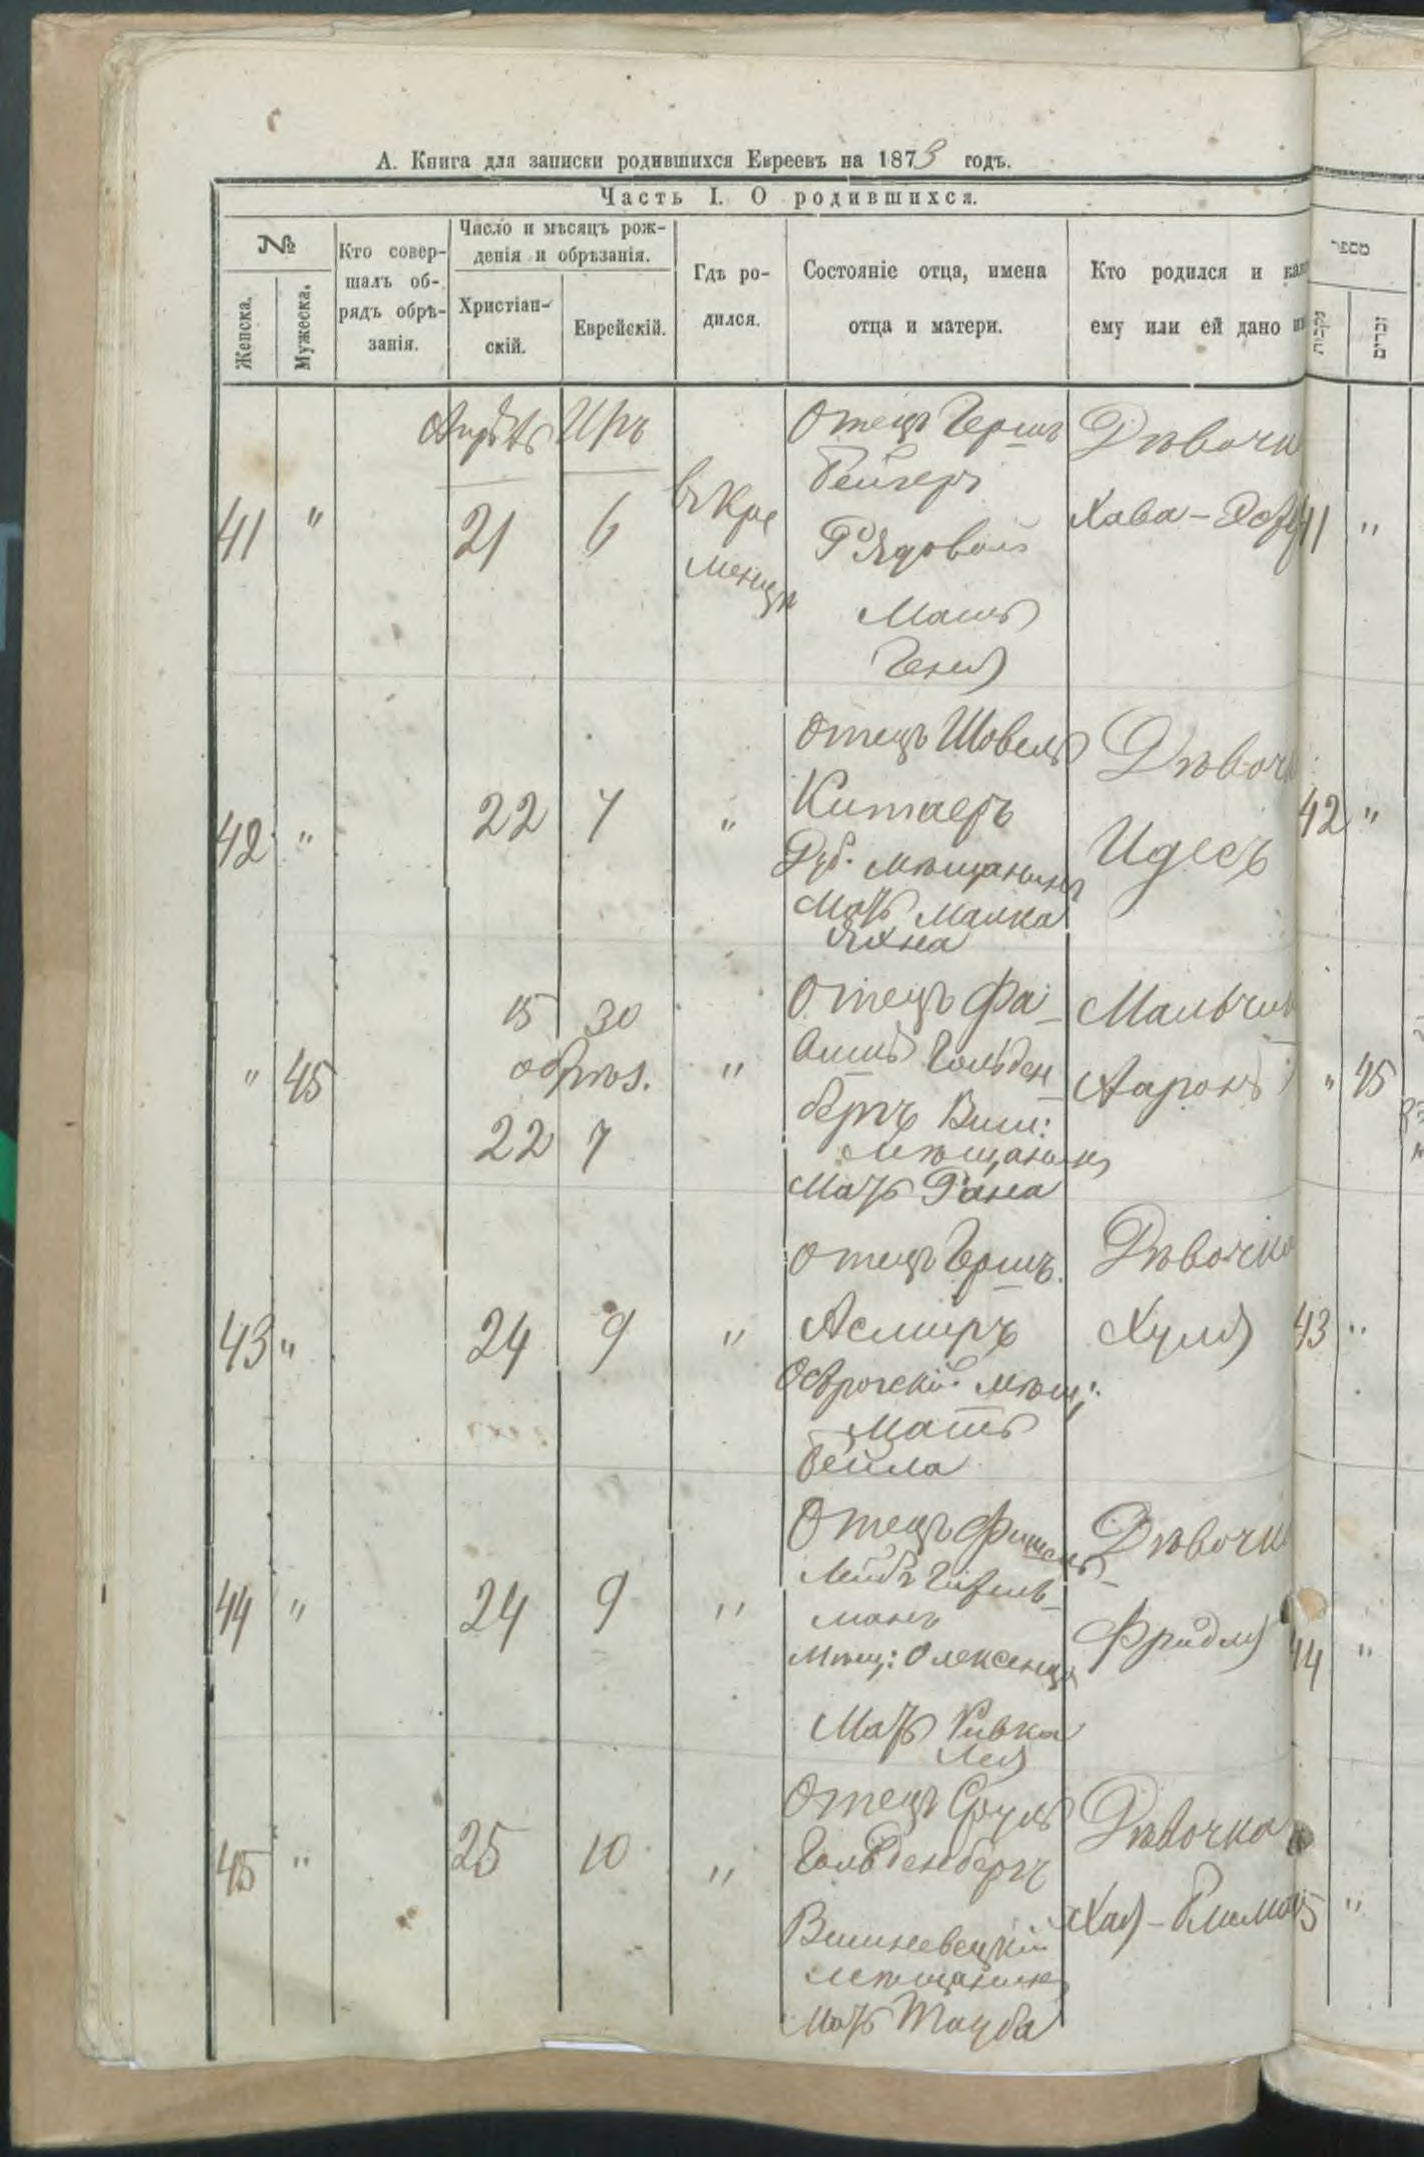 А. Книга для записки родившихся Евреевъ на 1873 годъ.
Часть I. О родившихся.
№
Женска.
Мужеска.
Кто совер-
шалъ об-
рядъ обрѣ-
занія.
Число и мѣсяцъ рож-
денія и обрѣзанія.
Христіан-
скій.
Еврейскій.
Гдѣ ро-
дился.
Состояніе отца, имена
отца и матери.
Кто родился и
ему или ей дано
מספר
נקבות
זכרים
Апрѣль Иръ
41 " 21 6
въ Кре
менцѣ
Отецъ Гершъ
Бейгеръ
Рядовой
Мать
Геня
Дѣвочк
Хава-
41 "
42 " 22 7 "
Отецъ Шовель
Китаеръ
Дуб. мѣщанинъ
Мать Малка
Яхна
Дѣвочк
Идесъ
42 "
" 45
15 30
обрѣз.
22 7
"
Отецъ Фа-
Гольден-
бергъ Виш:
мѣщанинъ
Мать Рана
Мальчик
Ааронъ
" 45
43 " 24 9 "
Отецъ Гершъ
Асмиръ
Острогскій мѣщ:
Мать
Бейла
Дѣвочка
Хуля
43 "
44 " 24 9 "
Отецъ Фишель
Лейбъ
манъ
Мѣщ: Олексенца
Мать Ривка
Лея
Дѣвочк
Фридля
44 "
45 " 25 10 "
Отецъ Сруль
Гольденбергъ
Вишневецкій
мѣщанинъ
Мать Тауба
Дѣвочка
Хая-
45 "